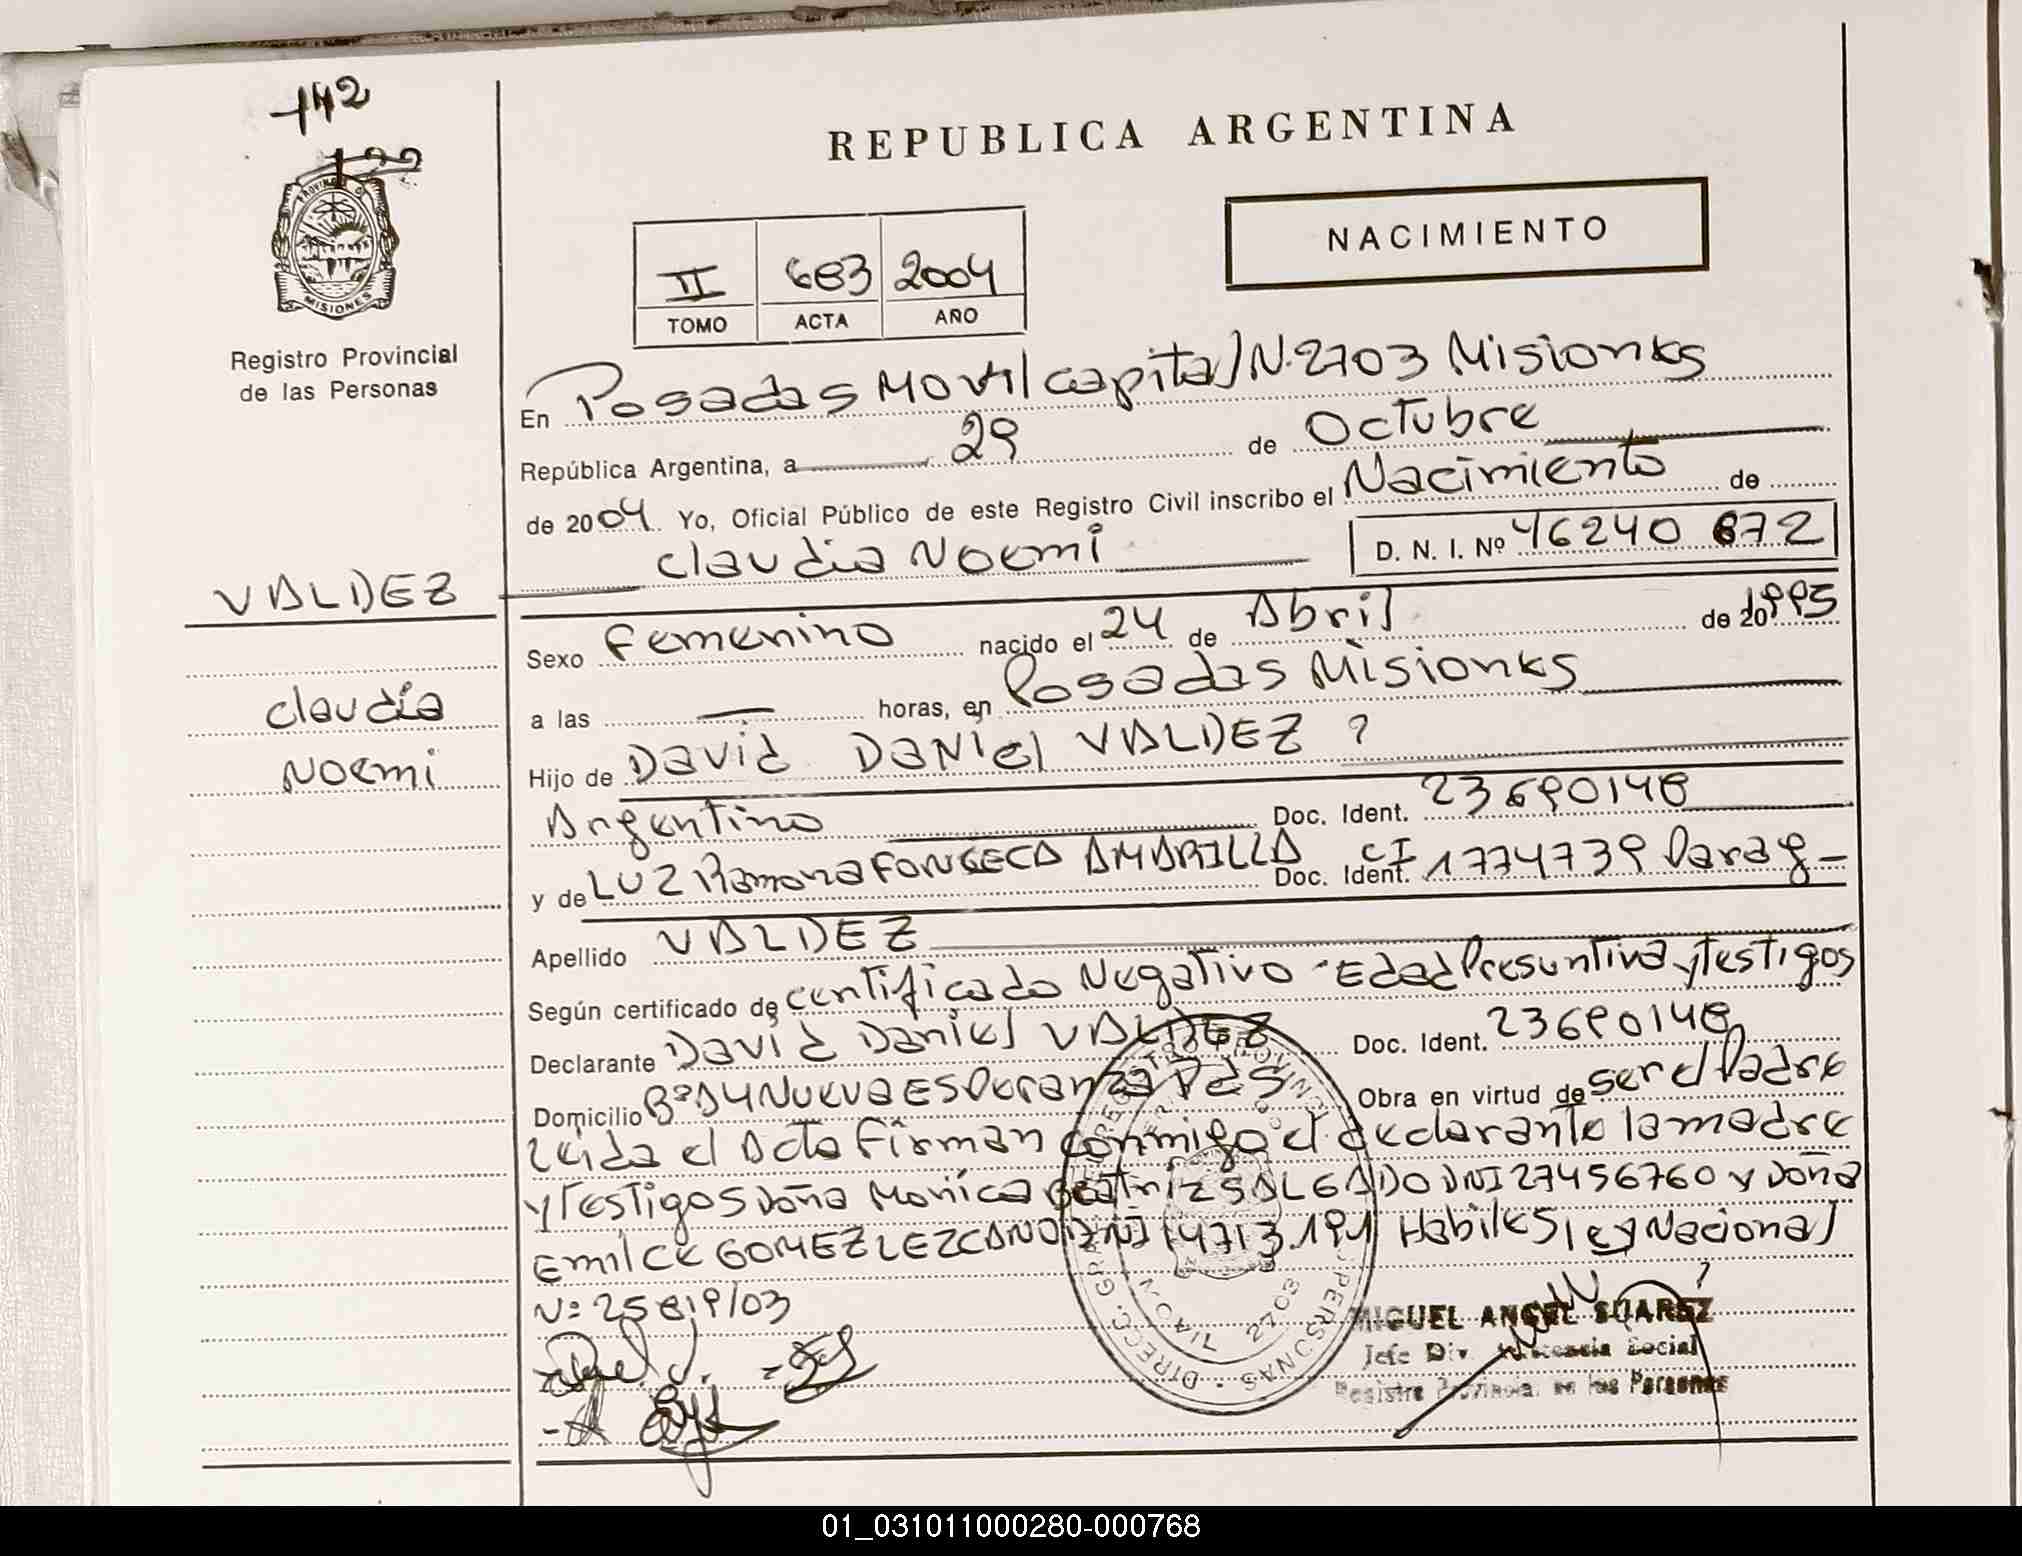 142
122
REPUBLICA ARGENTINA
NACIMIENTO
II 683 2004
TOMO ACTA AÑO
PROVINCIA DE MISIONES
Registro Provincial
de las Personas
En Posadas Movil capital N. 2703 Misiones
República Argentina, a 29 de Octubre
de 2004 Yo, Oficial Público de este Registro Civil inscribo el Nacimiento de
Claudia Noemi D. N. I. Nº 46240 872
VALDEZ
Claudia
Noemi
Sexo Femenino nacido el 24 de Abril de 1995
a las — horas, en Posadas Misiones
Hijo de David Daniel VALDEZ
Argentino Doc. Ident. 23690148
y de LUZ Ramona FONSECA AMARILLA Doc. Ident. CI 1774739 Parag-
Apellido VALDEZ
Según certificado de certificado Negativo - Edad Presuntiva y Testigos
Declarante David Daniel VALDEZ Doc. Ident. 23690148
Domicilio Bº A4 Nueva Esperanza Pdas Obra en virtud de ser el Padre
Leida el Acta Firman conmigo el declarante la madre
y Testigos Doña Monica Beatriz SALGADO DNI 27456760 y Doña
Emilce GOMEZ LEZCANO DNI 14713.191 Habiles ley Nacional
Nº 25819/03
MIGUEL ANGEL SUAREZ
Jefe Div. Asistencia Social
Registro Provincial de las Personas
DIRECC. GRAL. REGISTRO PROVINCIAL PERSONAS
MOVIL 2703
01_031011000280-000768